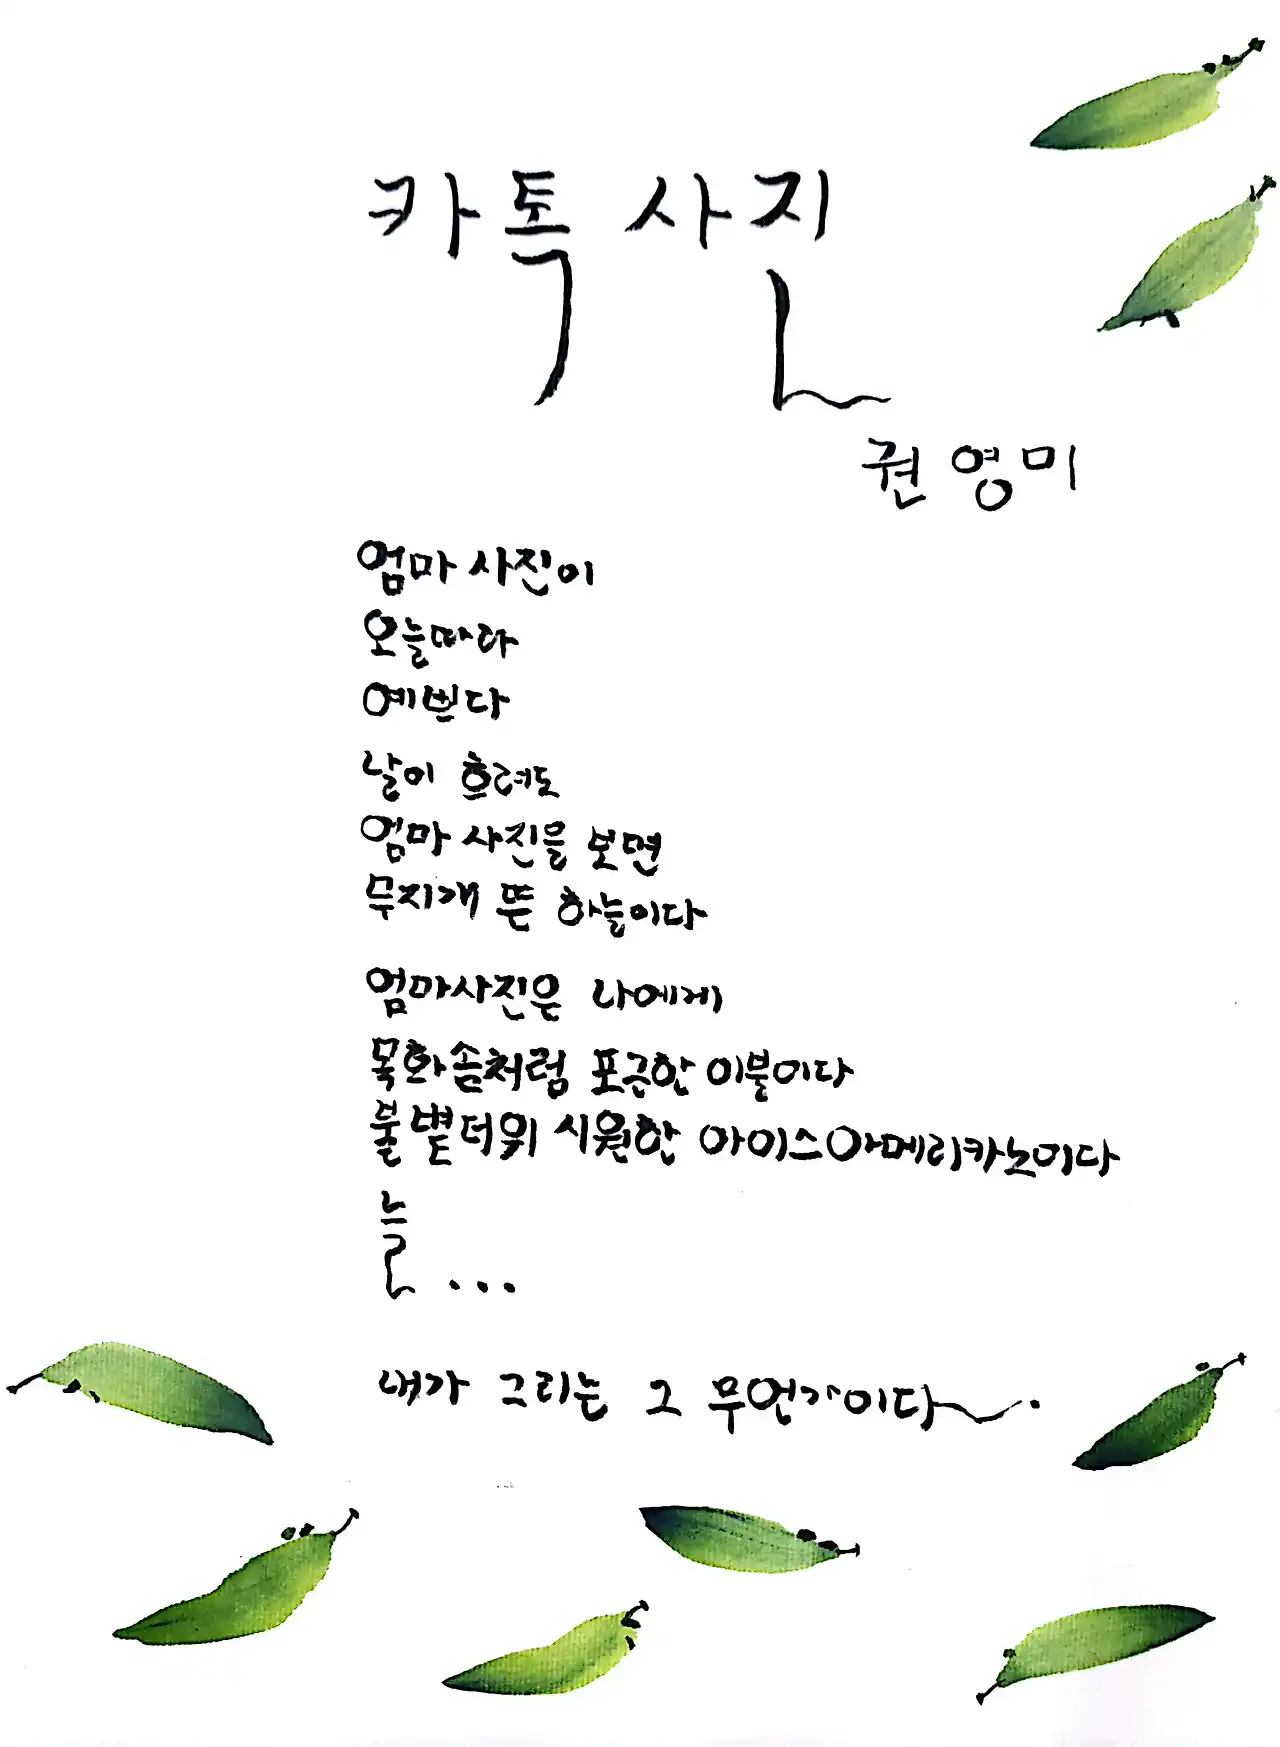 카톡 사진
권영미
엄마 사진이
오늘따라
예쁘다
날이 흐려도
엄마 사진을 보면
무지개 뜬 하늘이다
엄마사진은 나에게
목화솜처럼 포근한 이불이다
불볕더위 시원한 아이스아메리카노이다
늘...
내가 그리는 그 무언가이다~.